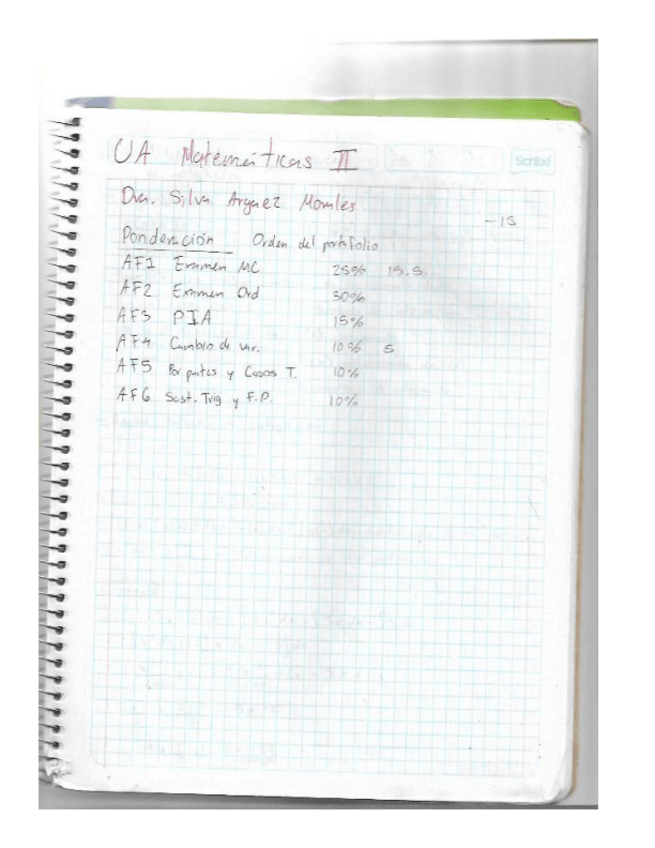 UA Matemáticas II
Scribe
Dra. Silva Arguez Morales
-15
Ponderación Orden del portafolio
AF1 Examen MC 25% 15.5
AF2 Examen Ord 30%
AF3 PIA 15%
AF4 Cambio de var. 10% 5
AF5 Por partes y Casos T. 10%
AF6 Sust. Trig y F.P. 10%